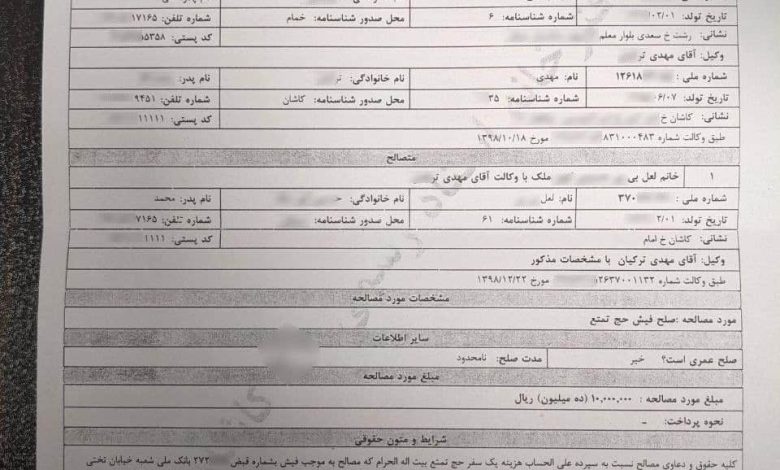 تاریخ تولد: ۰۲/۰۱/ شماره شناسنامه: ۶ محل صدور شناسنامه: خمام شماره تلفن: ۱۷۱۶۵
نشانی: رشت خ سعدی بلوار معلم کد پستی: ۵۳۵۸
وکیل: آقای مهدی تر
شماره ملی: ۱۲۶۱۸ نام: مهدی نام خانوادگی: تر نام پدر:
تاریخ تولد: ۰۶/۰۷/ شماره شناسنامه: ۳۵ محل صدور شناسنامه: کاشان شماره تلفن: ۹۴۵۱
نشانی: کاشان خ کد پستی: ۱۱۱۱۱
طبق وکالت شماره ۸۳۱۰۰۰۴۸۳ مورخ ۱۳۹۸/۱۰/۱۸
متصالح
۱ خانم لعل بی ملک با وکالت آقای مهدی تر
شماره ملی: ۳۷۰ نام: لعل نام خانوادگی: ح نام پدر: محمد
تاریخ تولد: ۲/۰۱/ شماره شناسنامه: ۶۱ محل صدور شناسنامه: شماره تلفن: ۷۱۶۵
نشانی: کاشان خ امام کد پستی: ۱۱۱۱
وکیل: آقای مهدی ترکیان با مشخصات مذکور
طبق وکالت شماره ۲۶۳۷۰۰۱۱۳۲ مورخ ۱۳۹۸/۱۲/۲۲
مشخصات مورد مصالحه
مورد مصالحه :صلح فیش حج تمتع
سایر اطلاعات
صلح عمری است؟ خیر مدت صلح: نامحدود
مبلغ مورد مصالحه
مبلغ مورد مصالحه : ۱۰,۰۰۰,۰۰۰ (ده میلیون) ریال
نحوه پرداخت: -
شرایط و متون حقوقی
کلیه حقوق و دعاوی مصالح نسبت به سپرده علی الحساب هزینه یک سفر حج تمتع بیت اله الحرام که مصالح به موجب فیش بشماره قبض ۲۷۲ بانک ملی شعبه خیابان تختی